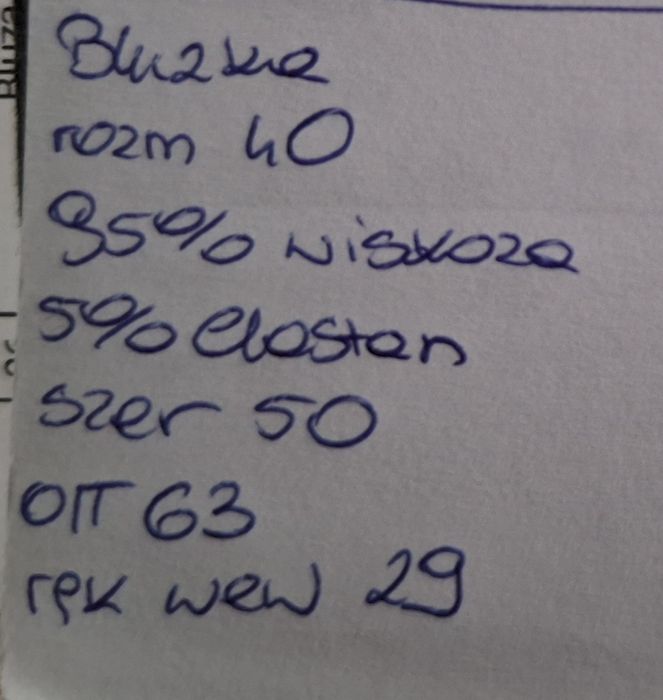 Bluzka
rozm 40
95% wiskoza
5% elastan
szer 50
OTT 63
ręk wew 29
Bluza